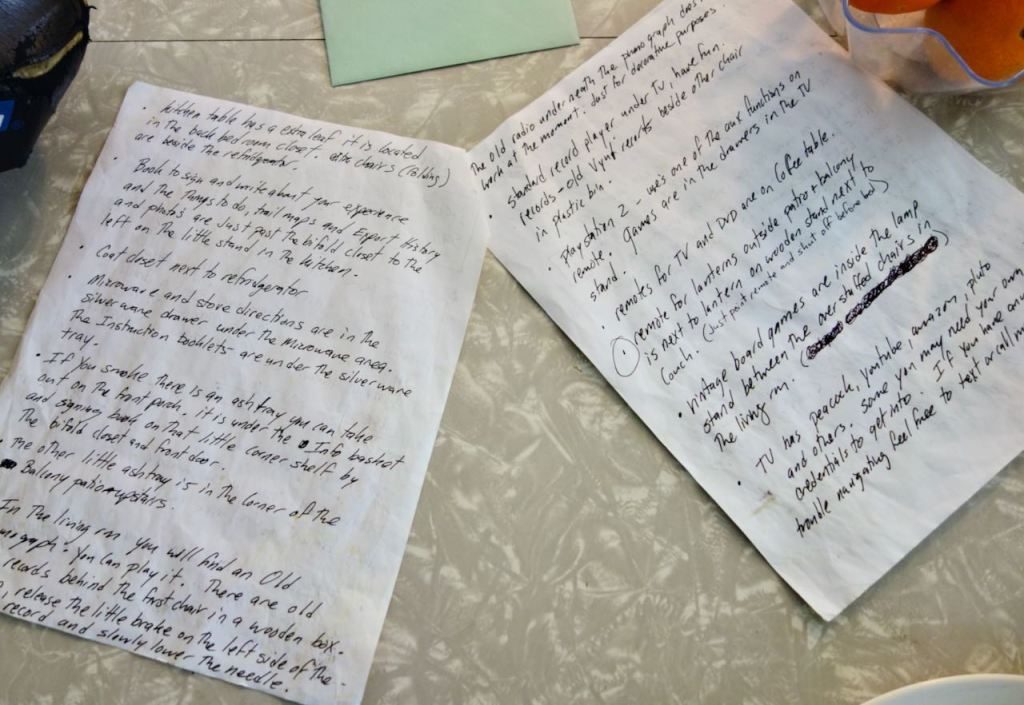 • Kitchen table has a extra leaf it is located
in the back bedroom closet. chairs (folding)
are beside the refridgerator.
• Book to sign and write about your experience
and the Things to do, trail maps and Export History
and photos are Just past the bifold closet to the
left on the little stand in the kitchen.
• Coat closet next to refridgerator
• Microwave and stove directions are in the
silverware drawer under the microwave area.
The Instruction booklets are under the silverware
tray.
• If you smoke there is an ashtray you can take
out on the front porch. it is under the Info basket
and signing book on that little corner shelf by
The bifold closet and front door.
• The other little ashtray is in the corner of the
Balcony patio upstairs.
In The living rm you will find an Old
You can play it. There are old
records behind the first chair in a wooden box.
release the little brake on the left side of the
record and slowly lower the needle.
The old radio underneath the phonograph
work at the moment. Just for decorative purposes.
• Standard record player under TV, have fun.
records - old vynl records beside other chair
in plastic bin.
• Playstation 2 - use one of the aux functions on
remote. Games are in the drawers in the TV
stand.
• remotes for TV and DVD are on Coffee table.
• remote for lanterns outside patio + balcony
is next to lantern on wooden stand next to
Couch. (Just point remote and shut off before bed)
• vintage board games are inside the lamp
stand between the overstuffed chairs in
The living rm.
• TV has peacock, youtube, amazon, pluto
and others. some you may need your own
credentials to get into. If you have any
trouble navigating feel free to text or call